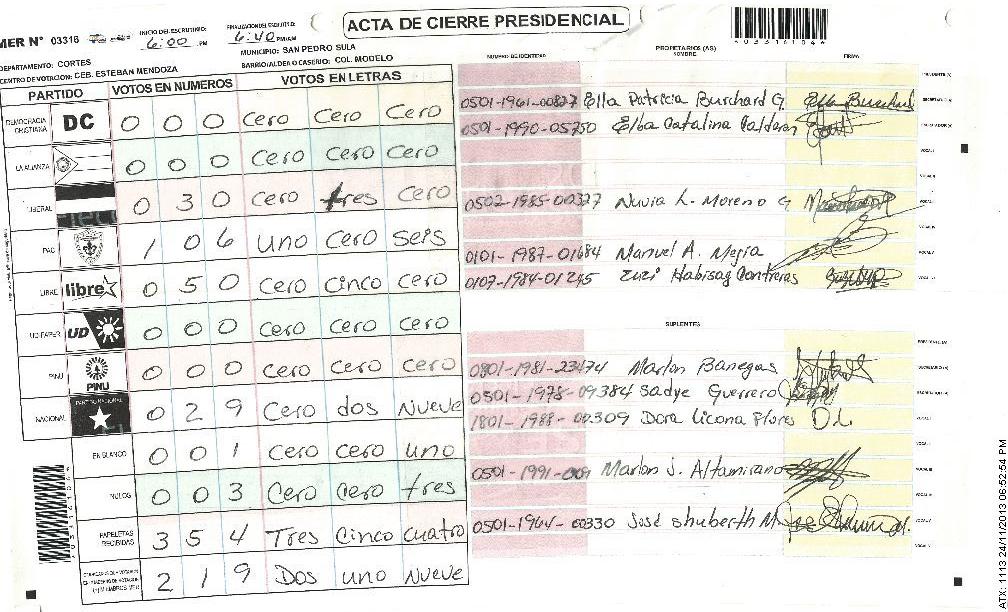 ACTA DE CIERRE PRESIDENCIAL
MER N° 03316
INICIO DEL ESCRUTINIO: 6:00 PM
FINALIZACION DEL ESCRUTINIO: 6:40 PM/AM
DEPARTAMENTO: CORTES
MUNICIPIO: SAN PEDRO SULA
CENTRO DE VOTACION: CEB. ESTEBAN MENDOZA
BARRIO/ALDEA O CASERIO: COL. MODELO
PARTIDO VOTOS EN NUMEROS VOTOS EN LETRAS
DEMOCRACIA CRISTIANA DC 0 0 0 Cero Cero Cero
LA ALIANZA 0 0 0 Cero Cero Cero
LIBERAL 0 3 0 Cero tres Cero
PAC 1 0 6 uno Cero seis
LIBRE libre 0 5 0 Cero Cinco Cero
UD FAPER UD 0 0 0 Cero Cero Cero
PINU PINU 0 0 0 Cero Cero Cero
NACIONAL PARTIDO NACIONAL 0 2 9 Cero dos Nueve
EN BLANCO 0 0 1 Cero Cero uno
NULOS 0 0 3 Cero Cero tres
PAPELETAS RECIBIDAS 3 5 4 Tres Cinco cuatro
2 1 9 Dos uno Nueve
NUMERO DE IDENTIDAD PROPIETARIOS (AS) NOMBRE FIRMA
0501-1961-00827 Elba Patricia Burchard G. Elba Burchard
0501-1990-05750 Elba Catalina Calderon
0502-1985-00327 Nuvia L. Moreno G
0101-1987-01684 Manuel A. Mejia
0107-1984-01245 Zuzi Habisag Contreras
SUPLENTES
0801-1981-23474 Marlon Banegas
0501-1978-09384 Sadye Guerrero
1801-1988-00309 Dora Licona Flores D.L
0501-1991- Marlon J. Altamirano
0501-1964-00330 José Shuberth M.
ATX: 1113 24/11/2013 06:52:54 PM